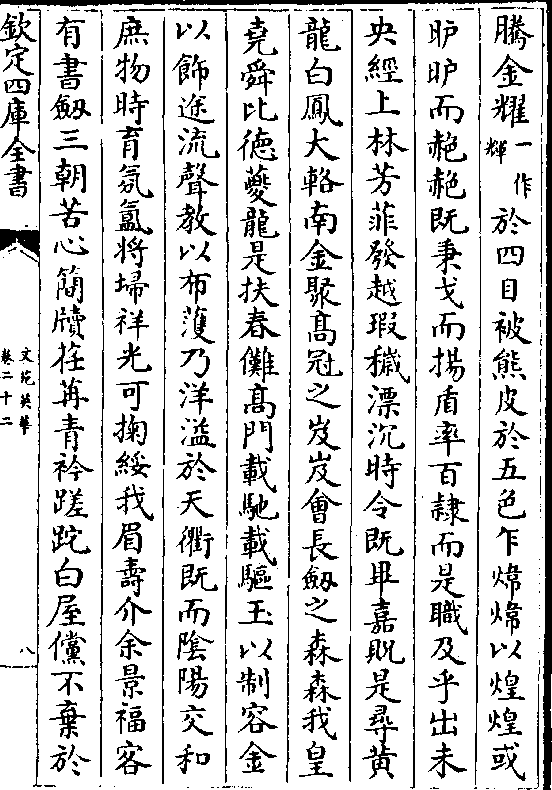 騰金耀一作輝於四目被熊皮於五色乍煒煒以煌煌或
昈昈而赩赩既秉戈而揚盾率百隸而是職及乎出未
央經上林芳菲發越瑕穢漂沉時令既畢嘉貺是尋黄
龍白鳳大輅南金聚髙冠之岌岌會長劔之森森我皇
堯舜比德夔龍是扶春儺髙門載馳載驅玉以制容金
以飾途流聲教以布濩乃洋溢於天衢既而陰陽交和
庶物時育氛氲将埽祥光可掬綏我眉壽介余景福客
有書劔三朝苦心簡牘荏苒青衿蹉跎白屋儻不棄於
欽定四庫全書
文苑英華
卷二十二
八